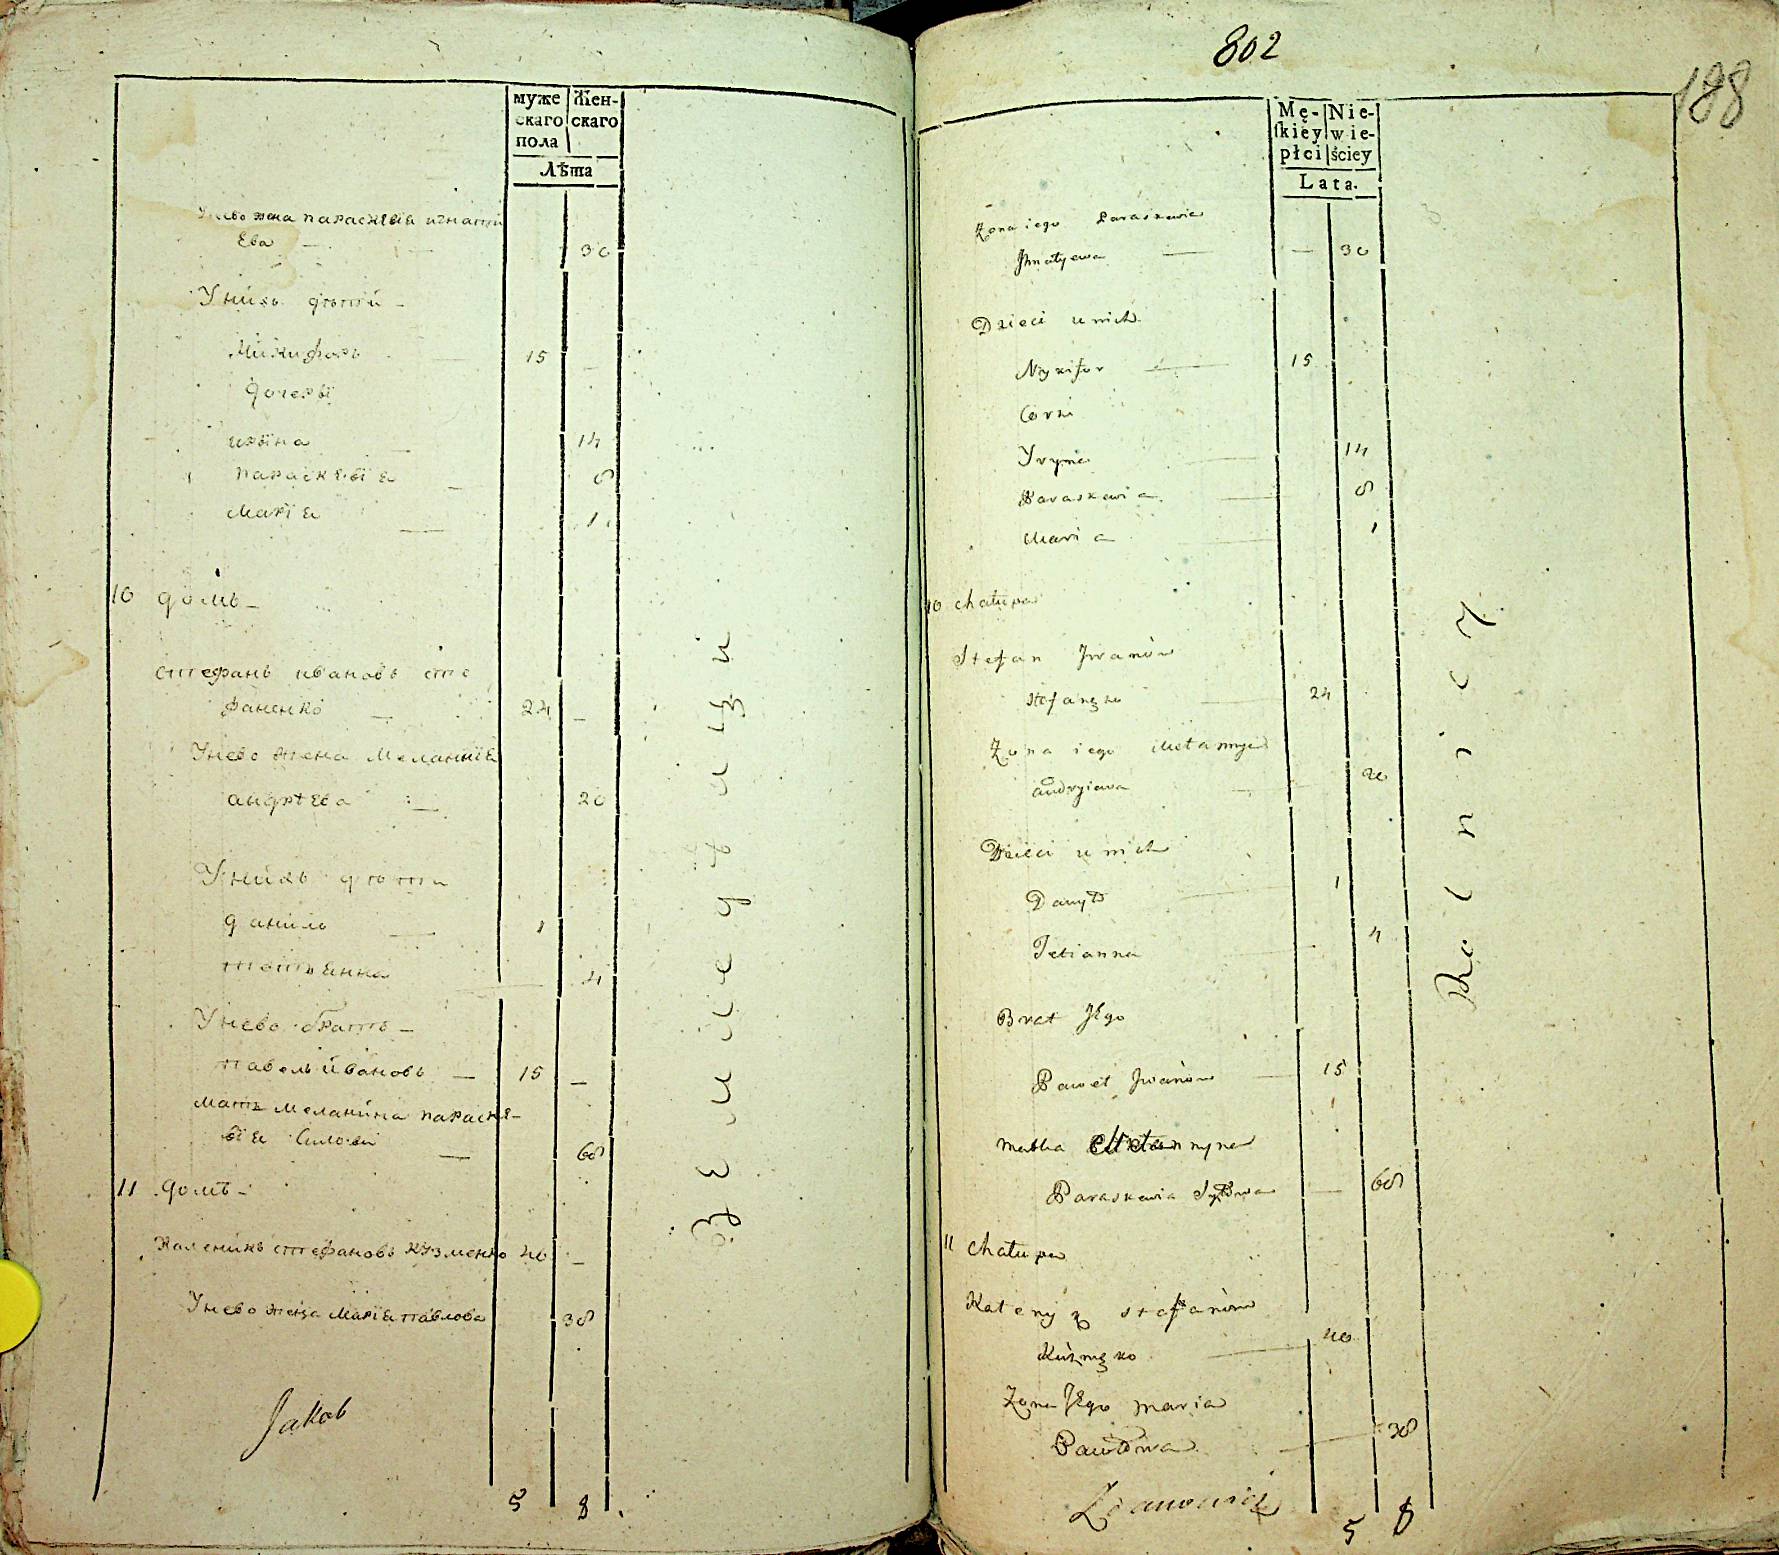 муже
скаго
пола
Жен-
скаго
Лѣта
Унево жена параскевія игнатй
ева — 30
Унихъ дѣтй —
Микифоръ — 15 —
дочеры
ирына — 14
параскевія — 8
Марія — 1
10 домъ —
стефанъ ивановъ сте
фаненко — 24 —
Унево жена Меланнія
андрѣева — 20
Унихъ дѣти
даниль — 1
татьянна — 4
Унево братъ —
павель ивановъ — 15 —
мать меланина параске-
вія силова — 68
11 домъ —
Каленикъ стефановъ кузменко 40 —
Унево жена Марія павлова 38
Jakob
5 8
земледѣлци
802
188
Mę-
skiey
płci
Nie-
wie-
ściey
Lata.
Żona iego Paraskewia
Jhnatyewa — — 30
Dzieci u nich
Nykifor — 15
Córki
Yryna — 14
Paraskewia — 8
Maria — 1
10 chałupa
Stefan Jwanów
Stefanęko — 24
Żona iego Mełannyia
andryiewa — 20
Dzieci u nich
Danyło — 1
Tetianna — 4
Brat Jego
Paweł Jwanów — 15
matka Mełannyna
Paraskewia Syłowa — 68
11 chałupa
Kałenyk stefanów
Kuźmęko — 40
Żona Jego maria
Pawłowa — 38
5 8
Rolnicy